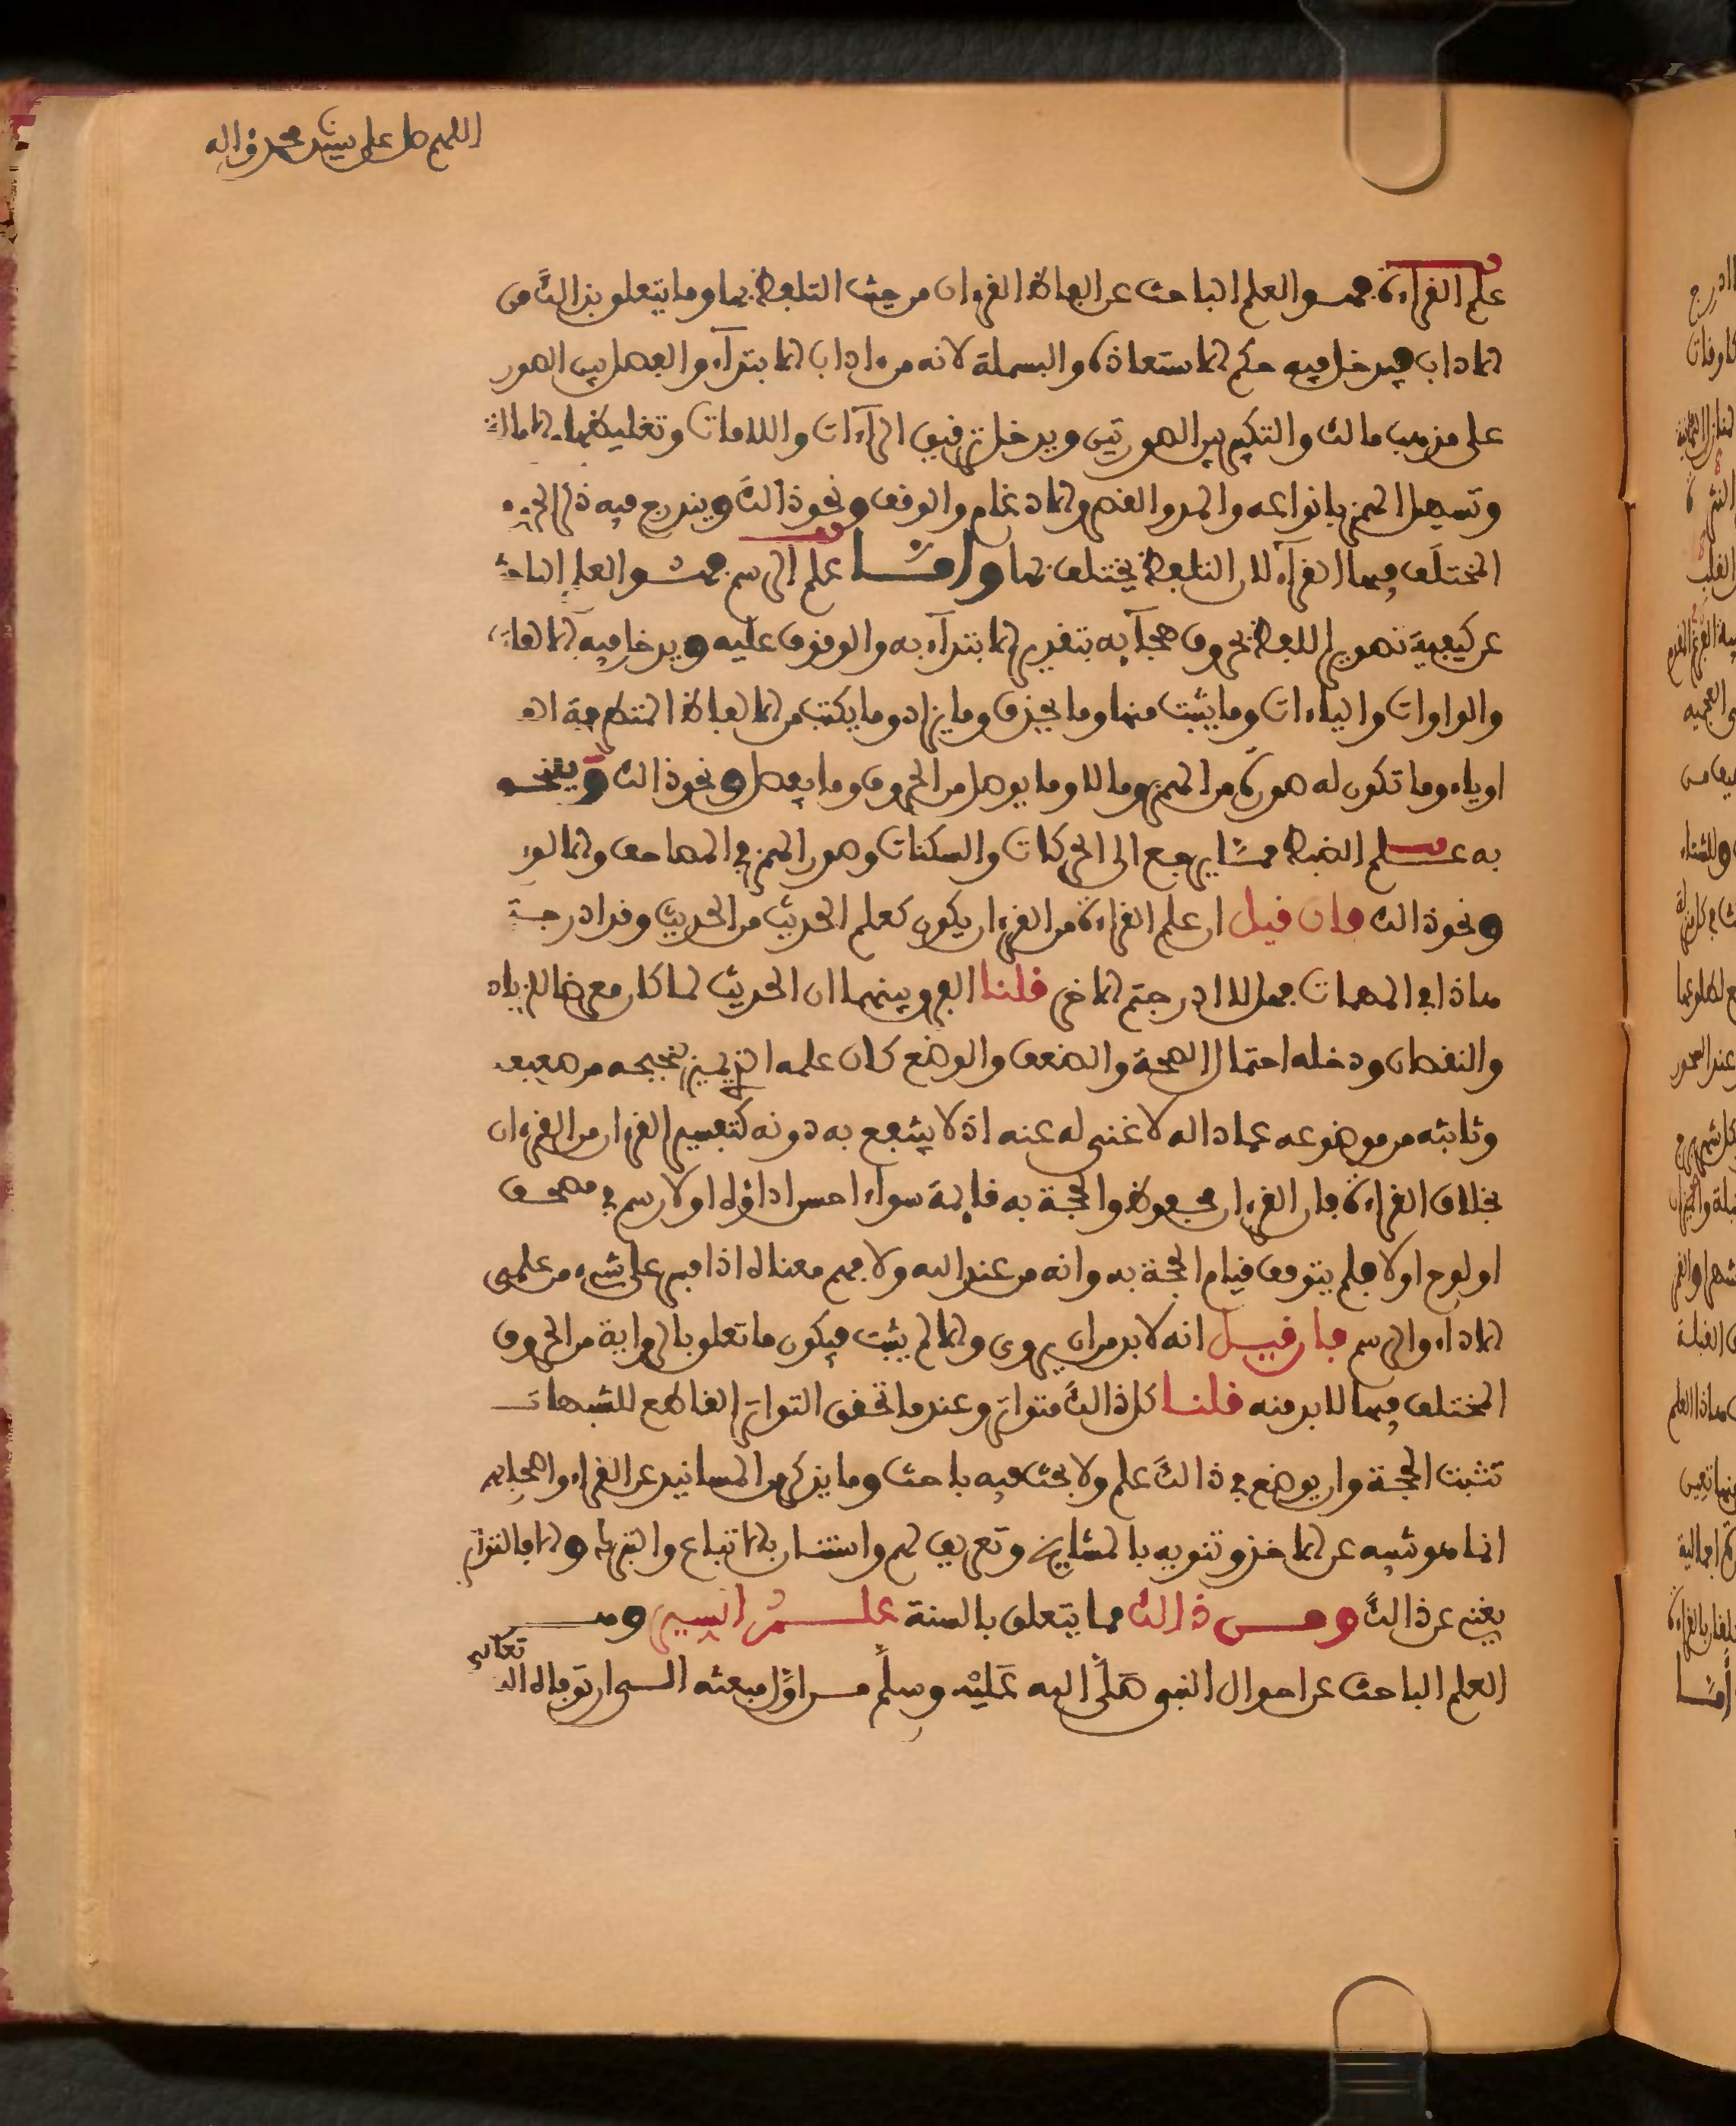 اللهم صل على سيدنا محمد واله
علم القراءة فهو العلم الباحث عن الفاظ القرءان من حيث التلفظ بها وما يتعلق بذالك من
الاداب فيدخل فيه حكم الاستعاذة والبسملة لانه من ءاداب الابتدآء والفصل بين السور
على مذهب مالك والتكبير بين السورتين ويدخل ترقيق الرآءات واللامات وتغليظها والامالة
وتسهيل الهمز بانواعه والمد والقصر والادغام والوقف ونحو ذالك ويندرج فيه ذكر الحروف
المختلف فيها القرآء لان التلفظ يختلف بها واما علم الرسم فهو العلم الباحث
عن كيفية تصوير اللفظ بحروف هجآيه بتقدير الابتدآء به والوقوف عليه ويدخل فيه الالفات
والواوات والياءات وما يثبت منها وما يحذف وما يزاد وما يكتب من الالفاظ المتطرفة الفا
او ياء وما تكون له صورة من الهمز وما لا وما يوصل من الحروف وما يفصل ونحو ذالك ويلتحق
به علم الضبط فيما يرجع الى الحركات والسكنات وصور الهمز في المصاحف والالواح
ونحو ذالك فان قيل ان علم القراءة من القرءان يكون كعلم الحديث من الحديث وقد ادرجت
هاذا في المهمات فهلا ادرجتم الاخر قلنا الفرق بينهما ان الحديث لما كان معرضا للزيادة
والنقصان ودخله احتمال الصحة والضعف والوضع كان علمه الذي يميز صحيحه من ضعيفه
وثابته من موضوعه عمادا له لا غنى له عنه اذ لا ينتفع به دونه كتفسير القرءان من القرءان
بخلاف القراءة فان القرءان محفوظ والحجة به قايمة سوآء احسن اداؤه او لا رسم في مصحف
او لوح او لا فلم يتوقف قيام الحجة به وانه من عند الله ولا فهم معناه اذا فسر على شيء من علمي
الاداء والرسم فان قيل انه لا بد من ان يروى والا لم يثبت فيكون ما تعلق بالرواية من الحروف
المختلف فيها لا بد منه قلنا كل ذالك متواتر وعند ما تحقق التواتر القاطع للشبهات
تثبت الحجة وان يوضع في ذالك علم ولا بحث فيه باحث وما يذكر من المسانيد عن القراء واصحابهم
انما هو تنبيه عن الاخذ وتنويه بالمشايخ وتعريف لهم واستنان بالاتباع والتبرك والا فالتواتر
يغني عن ذالك ومن ذالك مما يتعلق بالسنة علم السير وهو
العلم الباحث عن احوال النبي صلى الله عليه وسلم من اول مبعثه الى ان توفاه الله تعالى